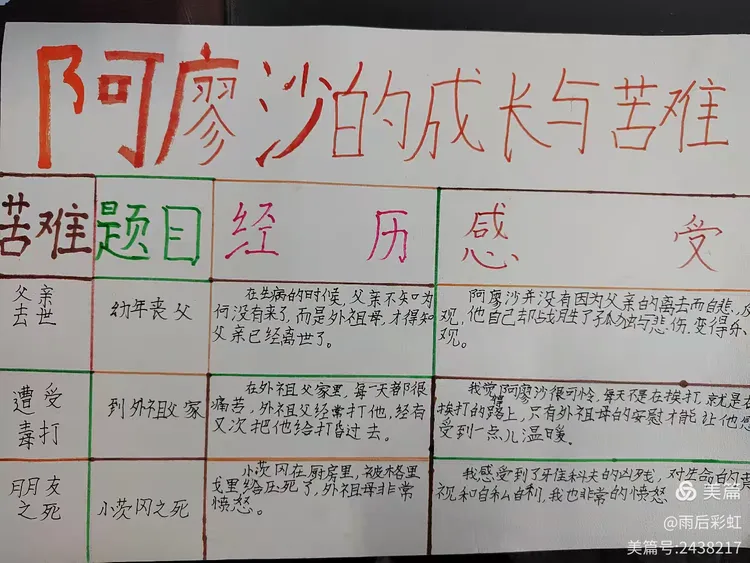 阿廖沙的成长与苦难
苦难 题目 经历 感受
父亲
去世
幼年丧父
在生病的时候,父亲不知为
何没有来了,而是外祖母,才得知
父亲已经离世了。
阿廖沙并没有因为父亲的离去而自悲、
观,他自己却战胜了孤独与悲伤,变得乐、
观。
遭受
毒打
到外祖父家
在外祖父家里,每一天都很
痛苦,外祖父经常打他,经有
又次把他给打昏过去。
我觉得阿廖沙很可怜,每天不是在挨打,就是在
挨打的路上,只有外祖母的安慰才能让他感
受到一点儿温暖。
朋友
之死
小茨冈之死
小茨冈在厨房里,被格里
戈里给压死了,外祖母非常
愤怒。
我感受到了牙佳科夫的凶残,对生命的
视和自私自利,我也非常的愤怒
美篇
@雨后彩虹
美篇号:2438217